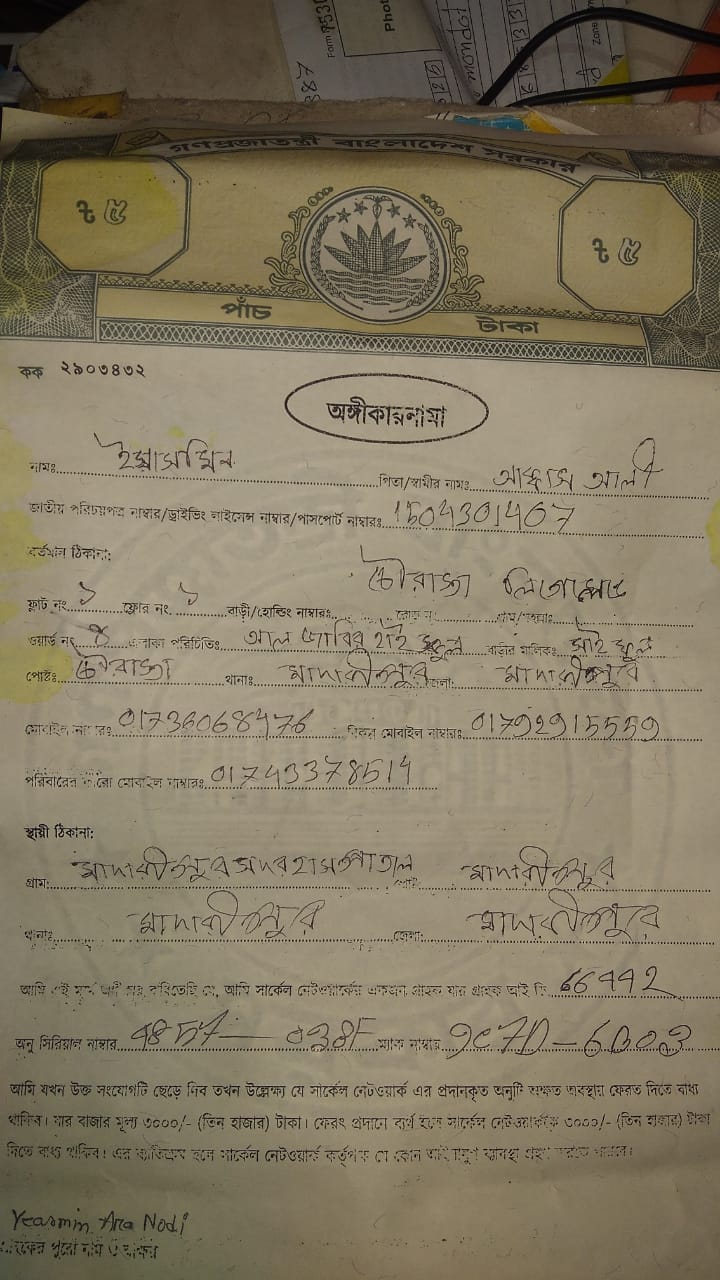 Form
গণপ্রজাতন্ত্রী বাংলাদেশ সরকার
৳ ৫
৳ ৫
পাঁচ টাকা
কক ২৯০৩৪৩২
অঙ্গীকারনামা
নামঃ ইয়াসমিন পিতা/স্বামীর নামঃ আব্বাস আলী
জাতীয় পরিচয়পত্র নাম্বার/ড্রাইভিং লাইসেন্স নাম্বার/পাসপোর্ট নাম্বারঃ 1504301407
বর্তমান ঠিকানা:
চৌরাস্তা
ফ্লাট নং ১ ফ্লোর নং ১ বাড়ী/হোল্ডিং নাম্বারঃ
ওয়ার্ড নং 4 এলাকা পরিচিতিঃ আল জাবির হাই স্কুল বাড়ীর মালিকঃ
পোষ্টঃ চৌরাস্তা থানাঃ মাদারীপুর জেলা: মাদারীপুর
মোবাইল নাম্বারঃ 01736068476 বিকল্প মোবাইল নাম্বারঃ 01792915559
পরিবারের কারো মোবাইল নাম্বারঃ 01743378514
স্থায়ী ঠিকানা:
গ্রাম: মাদারীপুর সদর হাসপাতাল পোষ্ট: মাদারীপুর
থানাঃ মাদারীপুর জেলা: মাদারীপুর
আমি এই মর্মে অঙ্গীকার করিতেছি যে, আমি সার্কেল নেটওয়ার্কের একজন গ্রাহক যার গ্রাহক আই ডি 66442
অনু সিরিয়াল নাম্বার 4857 — 038F ম্যাক নাম্বার 9C7D - 6003
আমি যখন উক্ত সংযোগটি ছেড়ে দিব তখন উল্লেক্ষ্য যে সার্কেল নেটওয়ার্ক এর প্রদানকৃত অনুটি অক্ষত অবস্থায় ফেরত দিতে বাধ্য
থাকিব। যার বাজার মূল্য ৩০০০/- (তিন হাজার) টাকা। ফেরৎ প্রদানে ব্যর্থ হলে সার্কেল নেটওয়ার্ককে ৩০০০/- (তিন হাজার) টাকা
দিতে বাধ্য থাকিব। এর ব্যতিক্রম হলে সার্কেল নেটওয়ার্ক কর্তৃপক্ষ যে কোন আইনানুগ ব্যবস্থা গ্রহণ করতে পারবে।
Yeasmin Ara Nodi
গ্রাহকের পুরো নাম ও স্বাক্ষর